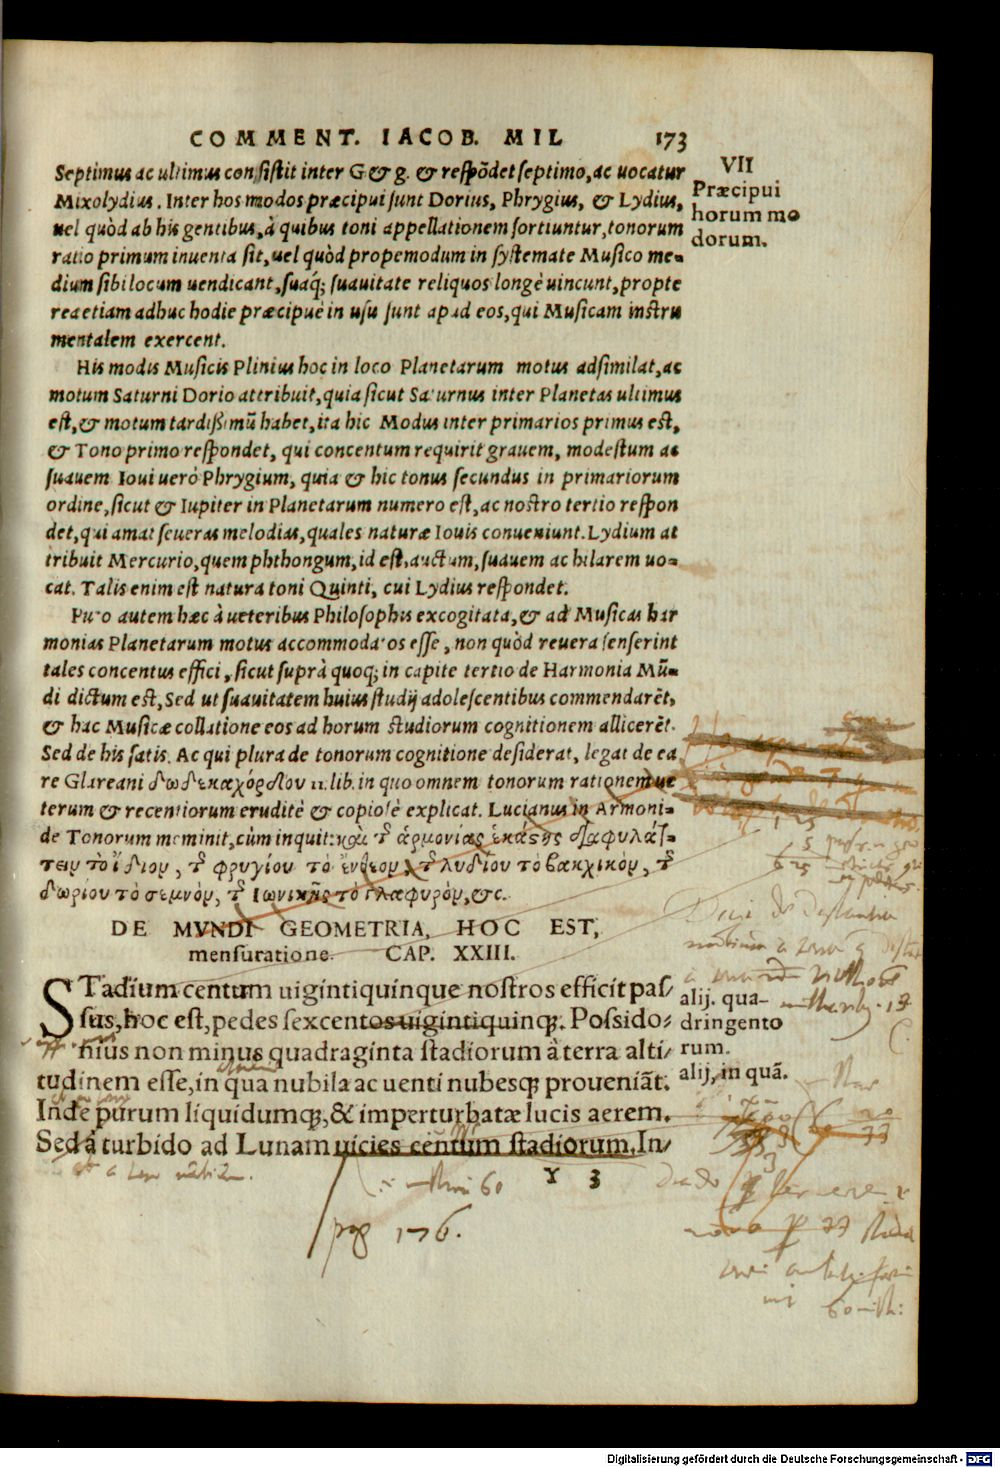 COMMENT. IACOB. MIL 173
Septimus ac ultimus consistit inter G & g. & respōdet septimo, ac uocatur
Mixolydius. Inter hos modos præcipui sunt Dorius, Phrygius, & Lydius,
uel quòd ab his gentibus, à quibus toni appellationem sortiuntur, tonorum
ratio primum inuenta sit, uel quòd propemodum in systemate Musico me-
dium sibi locum uendicant, suaq́; suauitate reliquos longè uincunt, propte
rea etiam adhuc hodie præcipuè in usu sunt apud eos, qui Musicam instru
mentalem exercent.
VII
Præcipui
horum mo
dorum.
His modis Musicis Plinius hoc in loco Planetarum motus adsimilat, ac
motum Saturni Dorio attribuit, quia sicut Saturnus inter Planetas ultimus
est, & motum tardißimū habet, ita hic Modus inter primarios primus est,
& Tono primo respondet, qui concentum requirit grauem, modestum ac
suauem Ioui uerò Phrygium, quia & hic tonus secundus in primariorum
ordine, sicut & Iupiter in Planetarum numero est, ac nostro tertio respon
det, qui amat seueras melodias, quales naturæ Iouis conueniunt. Lydium at
tribuit Mercurio, quem phthongum, id est, auctum, suauem ac hilarem uo-
cat. Talis enim est natura toni Quinti, cui Lydius respondet.
Puto autem hæc à ueteribus Philosophis excogitata, & ad Musicas har
monias Planetarum motus accommodatos esse, non quòd reuera senserint
tales concentus effici, sicut suprà quoq; in capite tertio de Harmonia Mū-
di dictum est, Sed ut suauitatem huius studij adolescentibus commendarēt,
& hac Musicæ collatione eos ad horum studiorum cognitionem allicerēt.
Sed de his satis. Ac qui plura de tonorum cognitione desiderat, legat de ea
re Glareani δωδεκαχόρδου 11. lib. in quo omnem tonorum rationem ue
terum & recentiorum eruditè & copiosè explicat. Lucianus in Armoni-
de Tonorum meminit, cùm inquit: καὶ τ͂ ἁρμονίας ἑκάστης διαφυλάτ-
τειν τὸ ἴδιον, τ͂ φρυγίου τὸ ἔνθεον, τ͂ λυδίου τὸ βακχικὸν, τ͂
δωρίου τὸ σεμνὸν, τ͂ ἰωνικῆς τὸ γλαφυρὸν, &c.
DE MVNDI GEOMETRIA, HOC EST,
mensuratione. CAP. XXIII.
STadium centum uigintiquinque nostros efficit pas-
sus, hoc est, pedes sexcentos uigintiquinq;. Possido-
nius non minus quadraginta stadiorum à terra alti-
tudinem esse, in qua nubila ac uenti nubesq; proueniāt.
Inde purum liquidumq;, & imperturbatæ lucis aerem.
Sed à turbido ad Lunam uicies centum stadiorum. In-
alij. qua-
dringento
rum.
alij, in quā.
Y 3
60
pag 176.
Digitalisierung gefördert durch die Deutsche Forschungsgemeinschaft - DFG